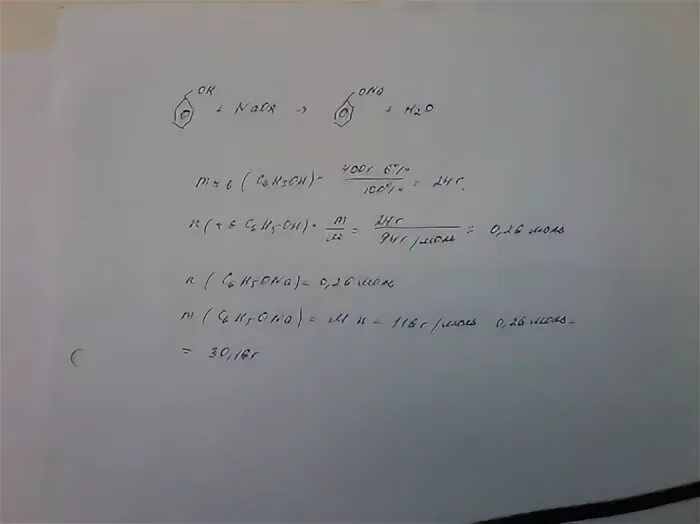 OH
ONa
+ NaOH →
+ H2O
m в в (C6H5OH) = 400г 6% / 100% = 24г.
n (в в C6H5OH) = m / M = 24г / 94г/моль = 0,26 моль
n (C6H5ONa) = 0,26 моль
m (C6H5ONa) = M n = 116г/моль 0,26 моль =
= 30,16г